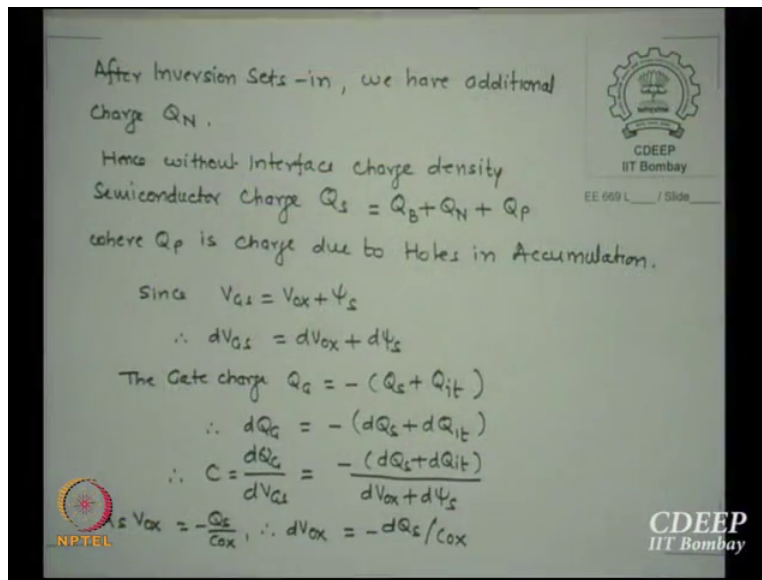 After Inversion Sets-in, we have additional
charge Q_N.
Hence without Interface charge density
Semiconductor charge Q_s = Q_B + Q_N + Q_p
where Q_p is charge due to Holes in Accumulation.
Since V_GS = V_ox + Ψ_s
∴ dV_GS = dV_ox + dΨ_s
The Gate charge Q_G = - (Q_s + Q_it)
∴ dQ_G = - (dQ_s + dQ_it)
∴ C = dQ_G / dV_GS = - (dQ_s + dQ_it) / dV_ox + dΨ_s
As V_ox = - Q_s / C_ox, ∴ dV_ox = - dQ_s / C_ox
CDEEP
IIT Bombay
EE 669 L___ / Slide___
NPTEL
CDEEP
IIT Bombay